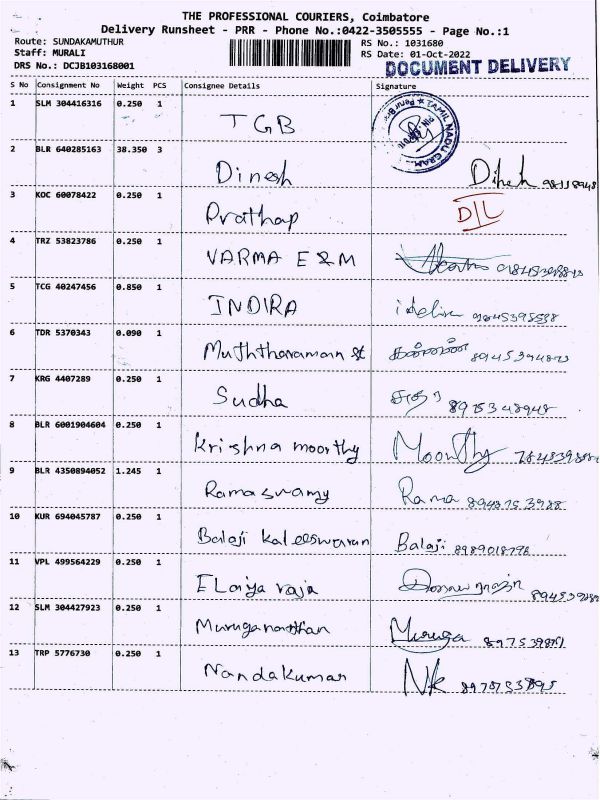 THE PROFESSIONAL COURIERS, Coimbatore
Delivery Runsheet - PRR - Phone No.:0422-3505555 - Page No.:1
Route: SUNDAKAMUTHUR RS No.: 1031680
Staff: MURALI RS Date: 01-Oct-2022
DRS No.: DCJB103168001 DOCUMENT DELIVERY
S No Consignment No Weight PCS Consignee Details Signature
1 SLM 304416316 0.250 1 TGB TAMIL NADU GRAM
2 BLR 640285163 38.350 3 Dinesh
3 KOC 60078422 0.250 1 Prathap D/L
4 TRZ 53823786 0.250 1 VARMA E&M
5 TCG 40247456 0.850 1 INDIRA
6 TDR 5370343 0.090 1 Muththaraman st
7 KRG 4407289 0.250 1 Sudha சுதா 8975348948
8 BLR 6001904604 0.250 1 Krishna moorthy Moorthy
9 BLR 4350894052 1.245 1 Ramaswamy Rama 8948753988
10 KUR 694045787 0.250 1 Balaji Kaleeswaran Balaji
11 VPL 499564229 0.250 1 Elaiya raja
12 SLM 304427923 0.250 1 Murugananthan Muruga
13 TRP 5776730 0.250 1 Nandakumar Nk